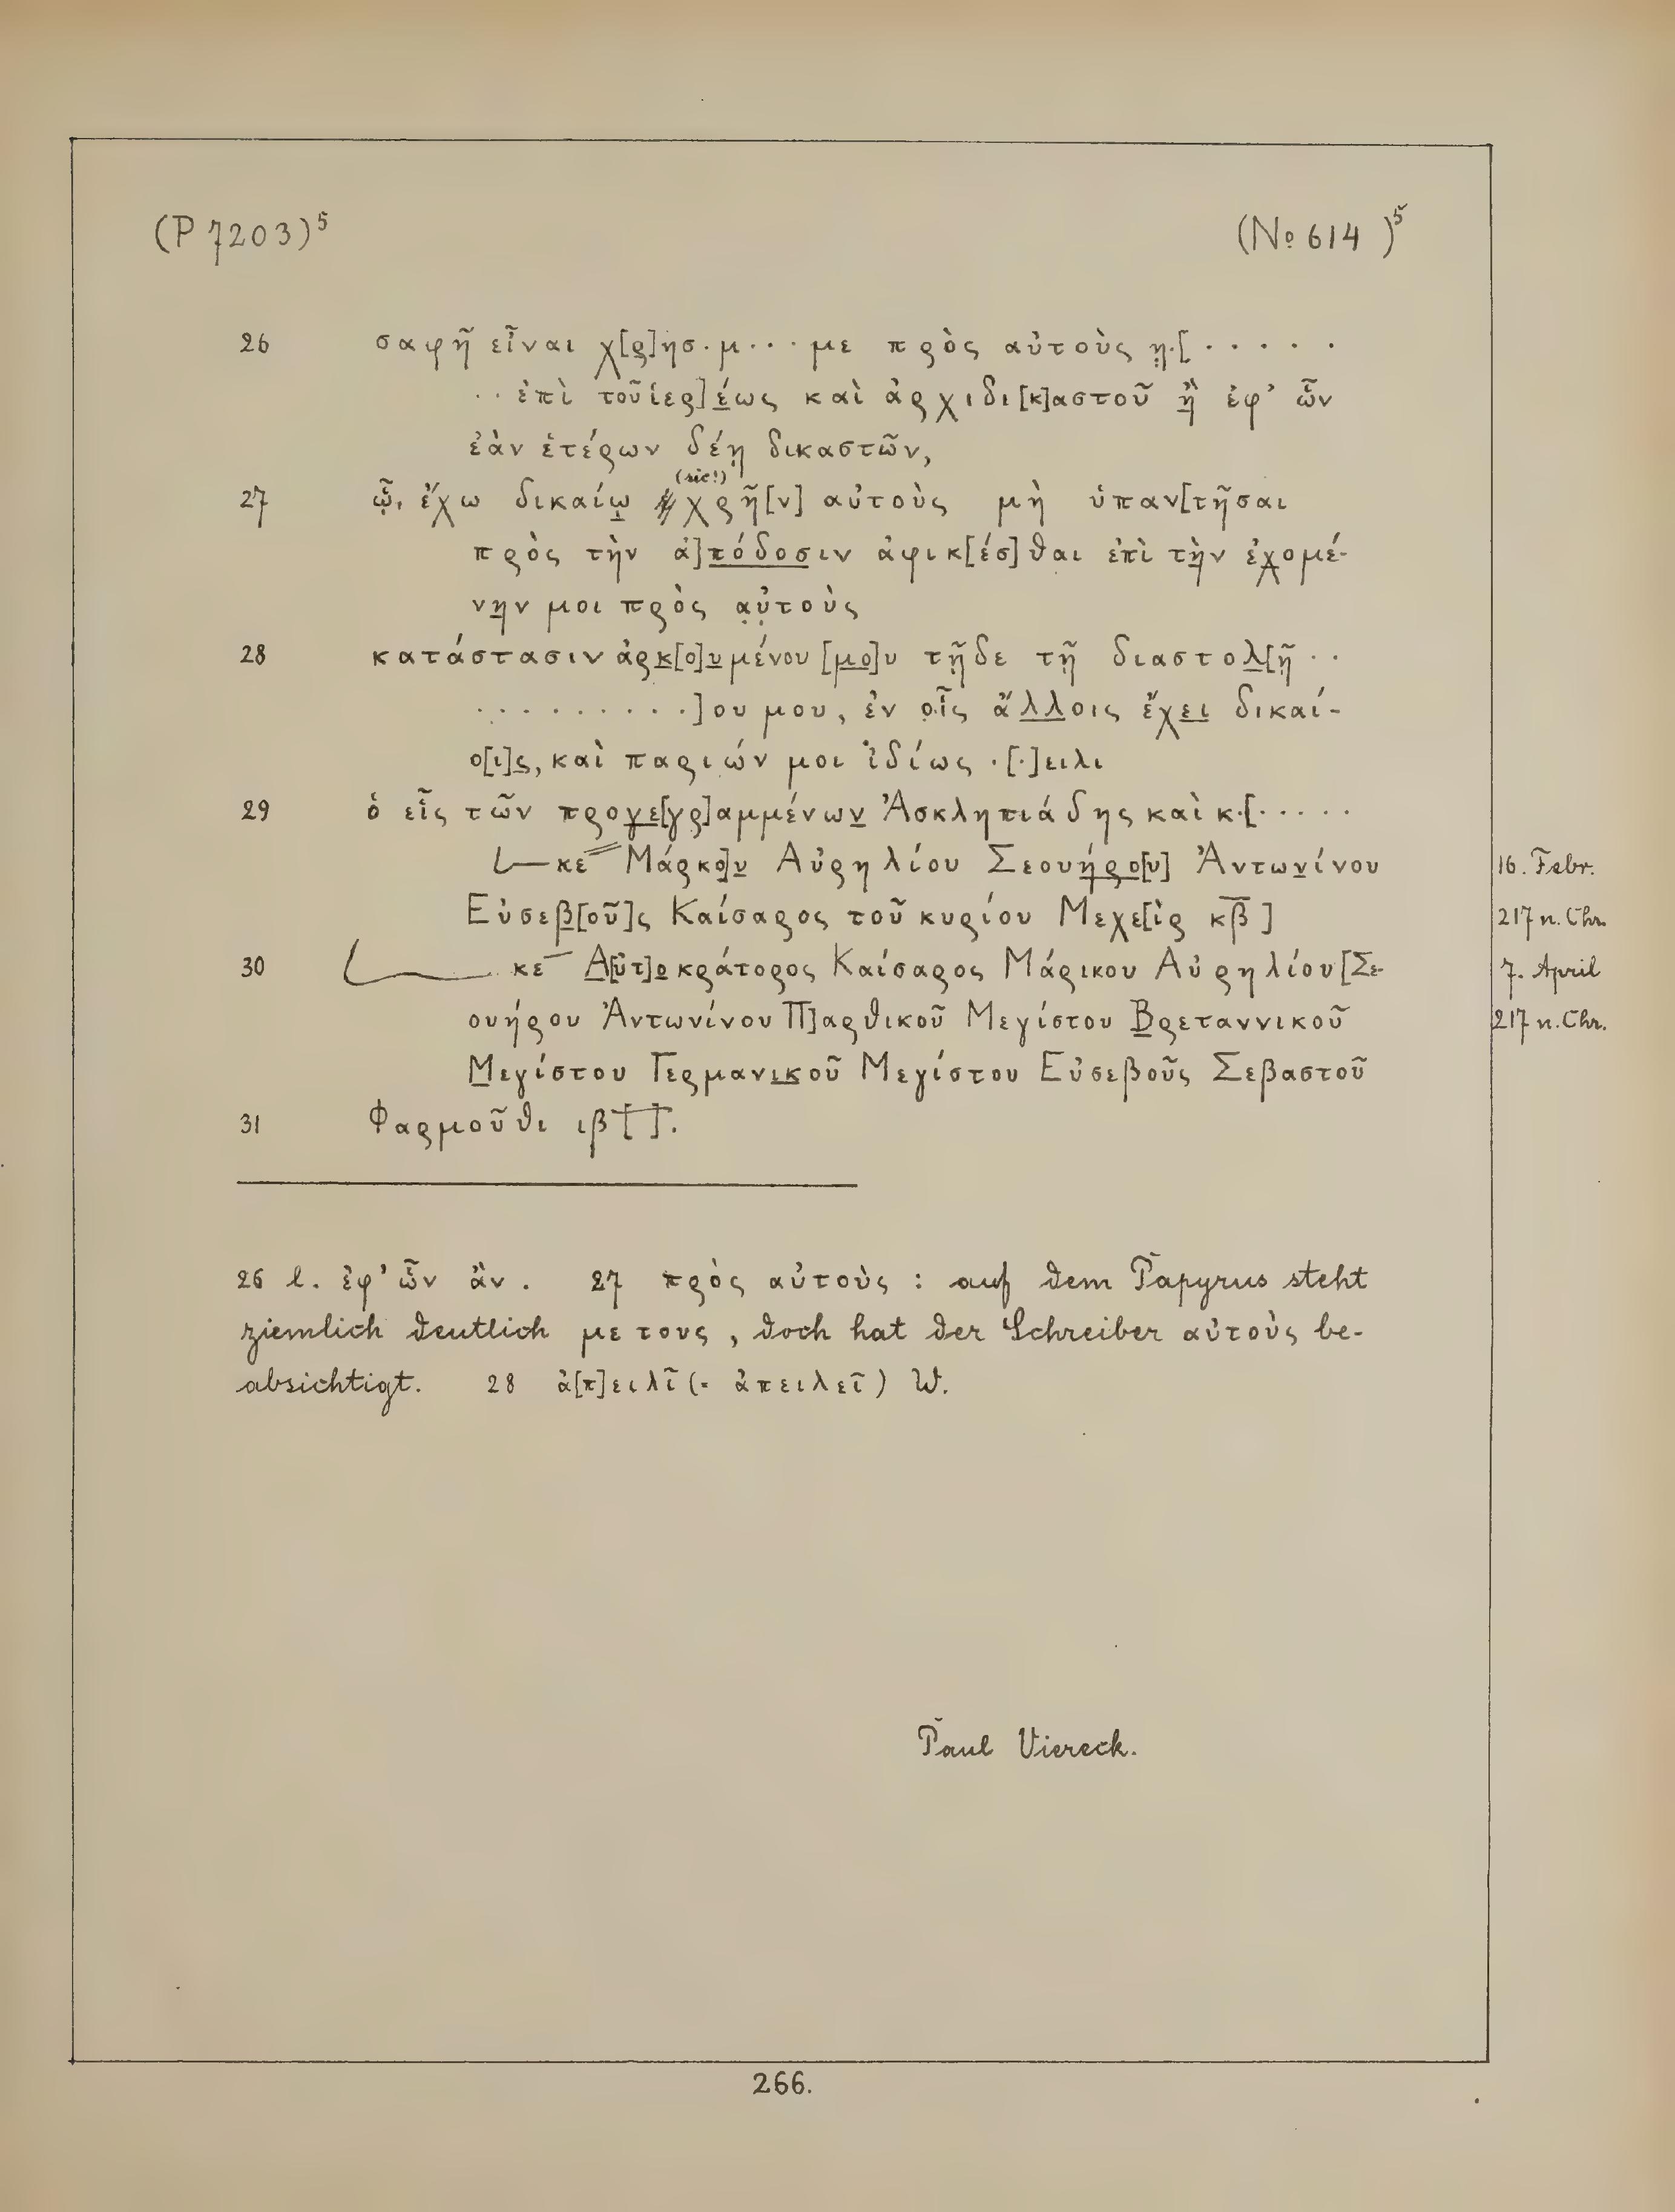 (P 7203)⁵ (No 614)⁵
26 σαφῆ εἶναι χ[ρ]ησ·μ···με πρὸς αὐτοὺς η·[·····
··ἐπὶ τοῦ ἱερ]έως καὶ ἀρχιδι[κ]αστοῦ ἢ ἐφ' ὧν
ἐὰν ἑτέρων δέῃ δικαστῶν,
(sic!)
27 ᾧ, ἔχω δικαίῳ χρῆ[ν] αὐτοὺς μὴ ὑπαν[τῆσαι
πρὸς τὴν ἀ]πόδοσιν ἀφικ[έσ]θαι ἐπὶ τὴν ἐχομέ-
νην μοι πρὸς αὐτοὺς
28 κατάστασιν ἀρκ[ο]υμένου [μο]υ τῇδε τῇ διαστολ[ῇ ··
·········]ου μου, ἐν οἷς ἄλλοις ἔχει δικαί-
ο[ι]ς, καὶ παριών μοι ἰδίως ·[·]ειλι
29 ὁ εἷς τῶν προγε[γρ]αμμένων Ἀσκληπιάδης καὶ κ·[·····
κε Μάρκο]υ Αὐρηλίου Σεουήρο[υ] Ἀντωνίνου 16. Febr.
Εὐσεβ[οῦ]ς Καίσαρος τοῦ κυρίου Μεχε[ὶρ κβ̅] 217 n. Chr.
30 κε Α[ὐτ]οκράτορος Καίσαρος Μάρικου Αὐρηλίου [Σε- 7. April
ουήρου Ἀντωνίνου Π]αρθικοῦ Μεγίστου Βρεταννικοῦ 217 n. Chr.
Μεγίστου Γερμανικοῦ Μεγίστου Εὐσεβοῦς Σεβαστοῦ
31 Φαρμοῦθι ιβ[ ].
26 l. ἐφ' ὧν ἂν. 27 πρὸς αὐτοὺς : auf dem Papyrus steht
ziemlich deutlich με τους, doch hat der Schreiber αὐτοὺς be-
absichtigt. 28 ἀ[π]ειλῖ (= ἀπειλεῖ) W.
Paul Viereck.
266.